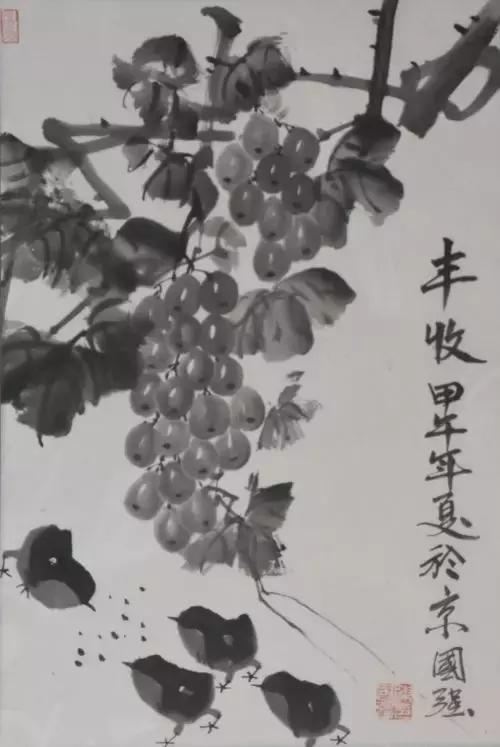 丰收 甲午年夏於京國强